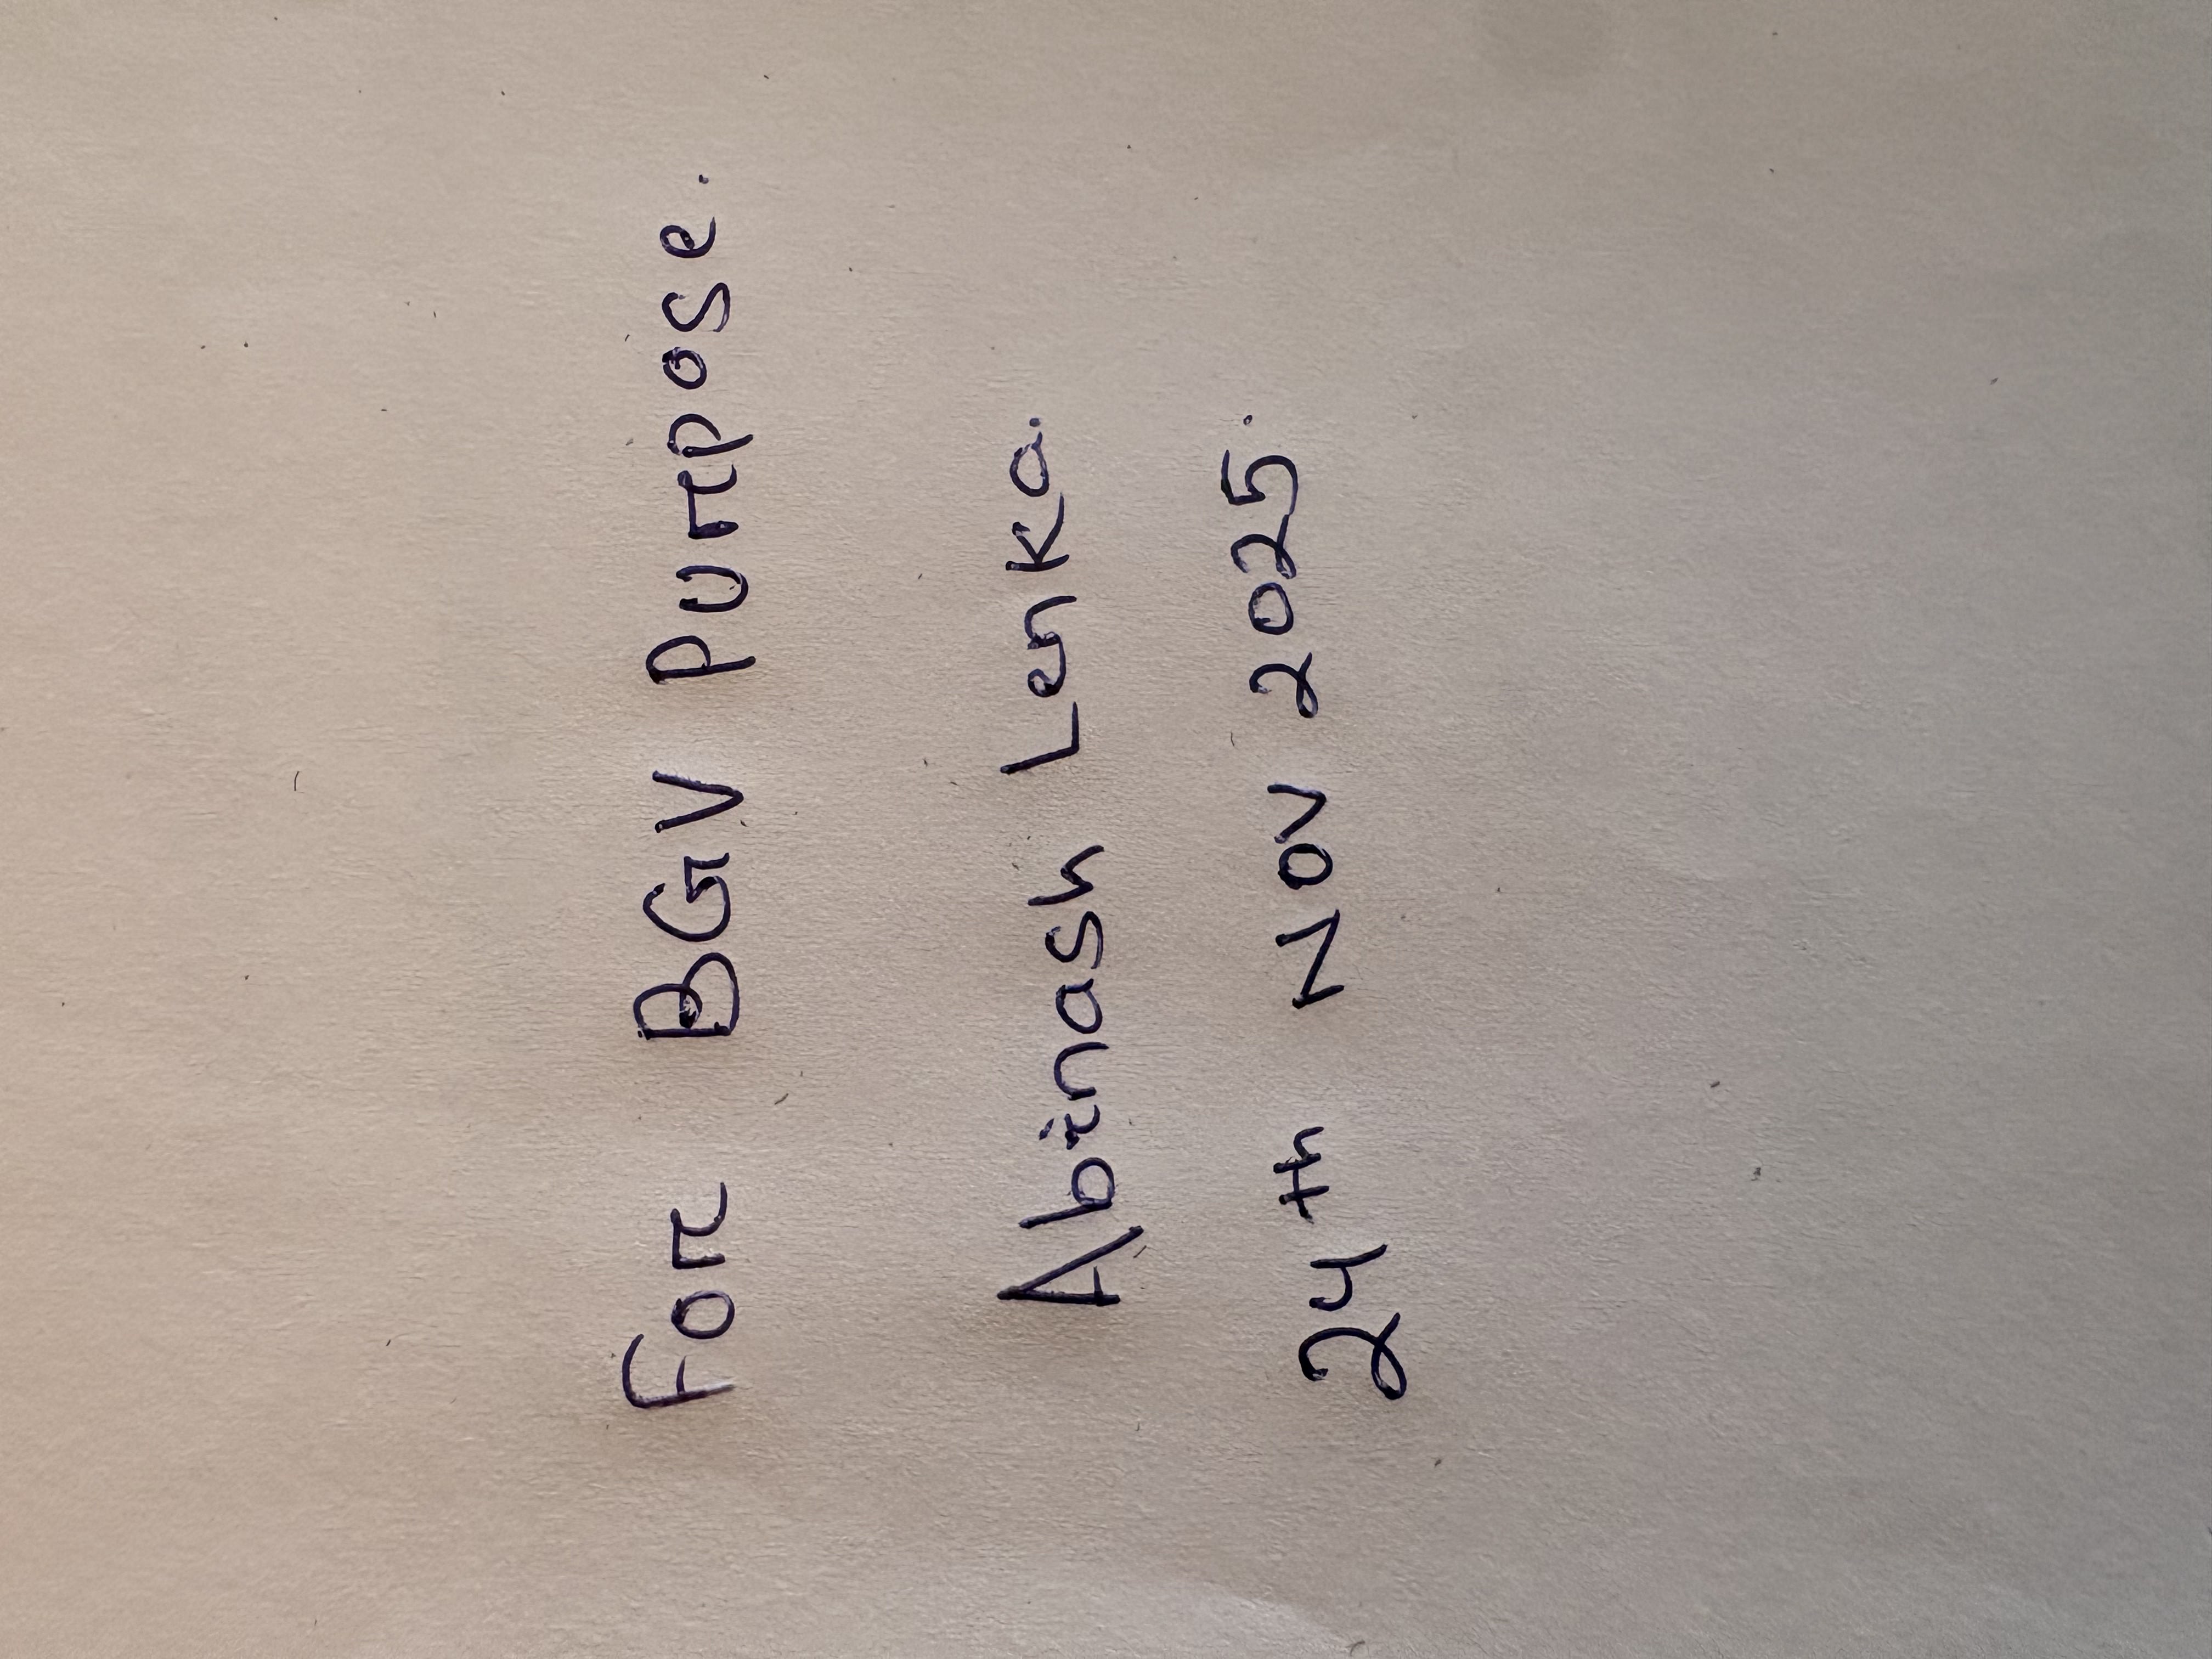 For BGV Purpose.
Abinash Lenka.
24th Nov 2025.